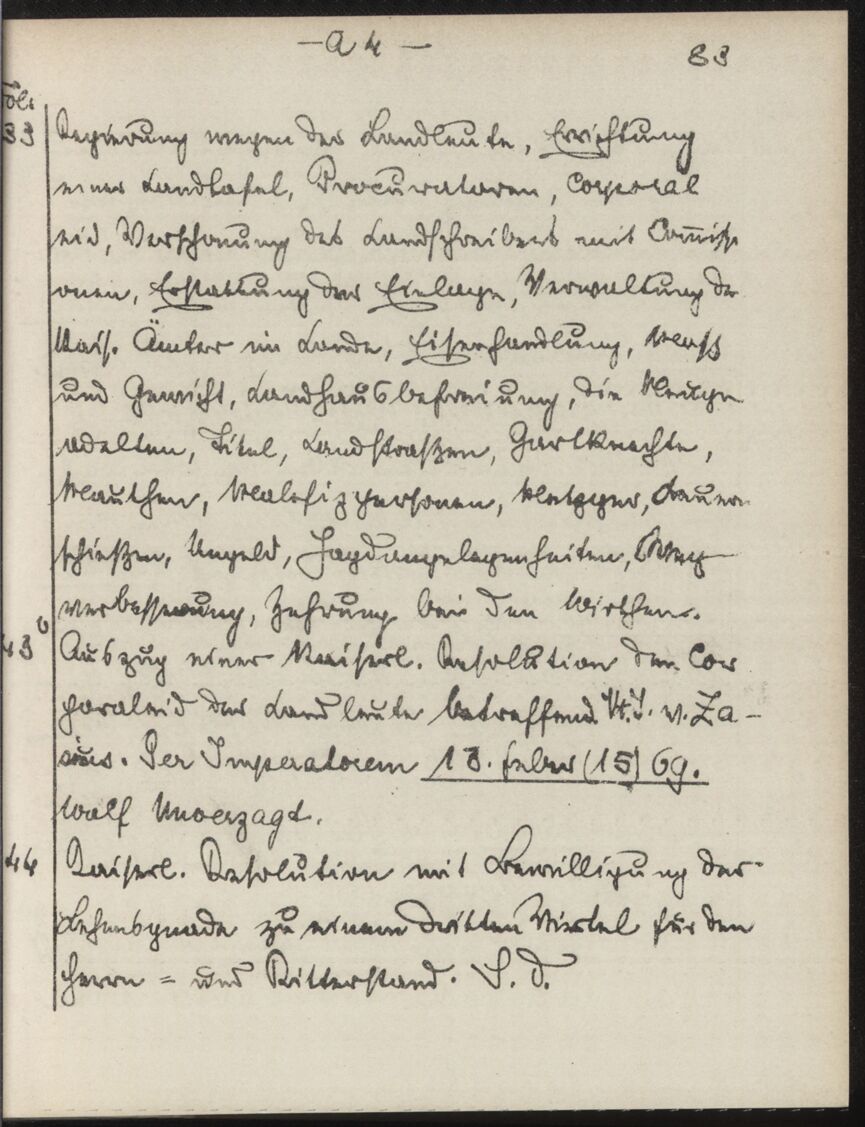 — A 4 —
83
Fol.
33 Regierung wegen der Landleute, Errichtung
einer Landtafel, Procuratoren, Corporal
eid, Verschonung des Landschreibers mit Commissi
onen, Erstattung der Einlage, Verwaltung der
Kais. Ämter im Lande, Eisenhandlung, Mass
und Gewicht, Landhausbefreiung, die Neuge
adelten, Titel, Landstraßen, Gartknechte,
Mauthen, Malefizpersonen, Metzger, Bauern
schießen, Ungeld, Jagdangelegenheiten, Weg
verbesserung, Zehrung bei den Wirthen.
43 Auszug einer Kaiserl. Resolution den Cor
poraleid der Landleute betreffend. v. Za-
sius. Per Imperatorem 13. febr (15) 69.
Wolf Unverzagt.
44 Kaiserl. Resolution mit Bewilligung der
Lehensgnade zu einem dritten Viertel für den
Herrn = und Ritterstand. S. d.